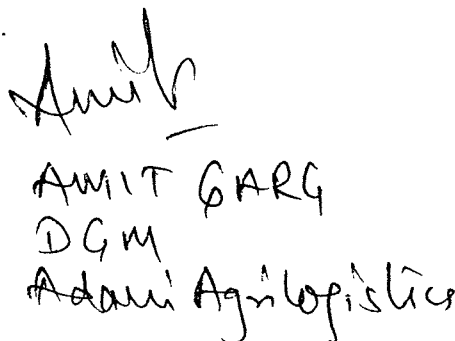 Amit
AMIT GARG
DGM
Adani Agrilogistics